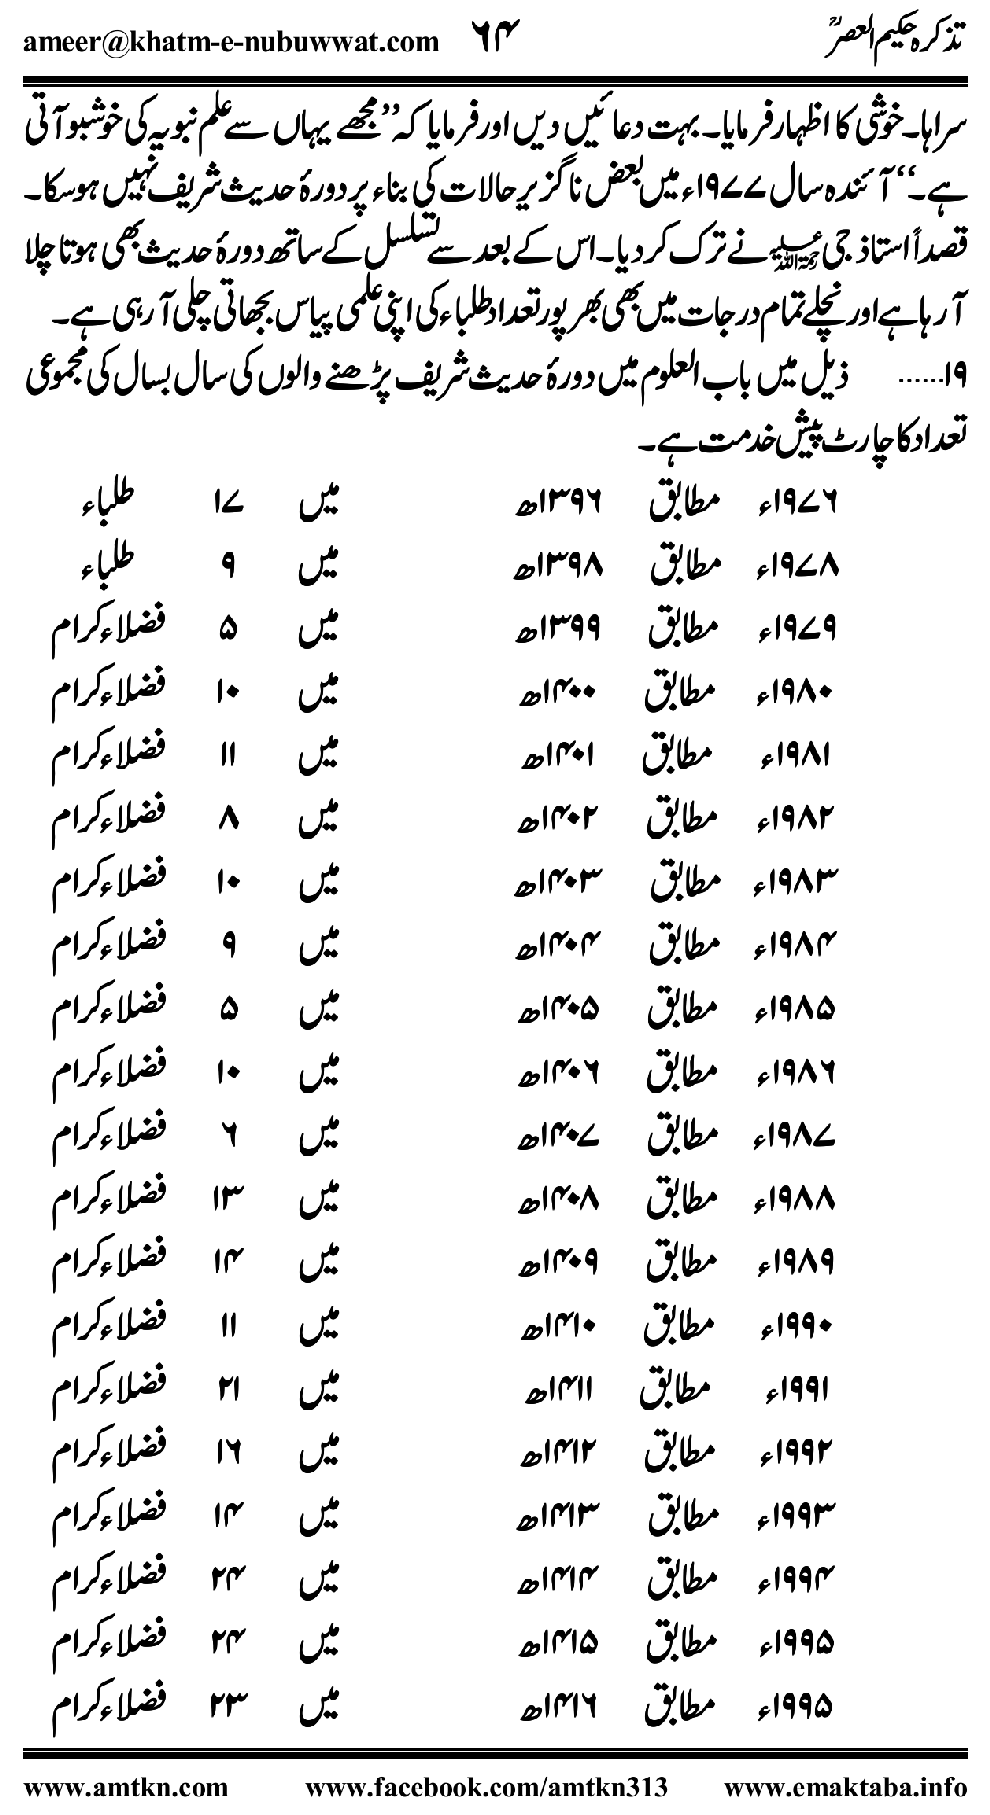 تذکرہ حکیم العصرؒ ۶۴ ameer@khatm-e-nubuwwat.com
سراہا۔ خوشی کا اظہار فرمایا۔ بہت دعائیں دیں اور فرمایا کہ ”مجھے یہاں سے علم نبویہ کی خوشبو آتی
ہے۔“ آئندہ سال ۱۹۷۷ء میں بعض ناگزیر حالات کی بناء پر دورۂ حدیث شریف نہیں ہوسکا۔
قصداً استاذ جی رحمۃ اللہ علیہ نے ترک کردیا۔ اس کے بعد سے تسلسل کے ساتھ دورۂ حدیث بھی ہوتا چلا
آ رہا ہے اور نچلے تمام درجات میں بھی بھرپور تعداد طلباء کی اپنی علمی پیاس بجھاتی چلی آ رہی ہے۔
۱۹...... ذیل میں باب العلوم میں دورۂ حدیث شریف پڑھنے والوں کی سال بسال کی مجموعی
تعداد کا چارٹ پیش خدمت ہے۔
۱۹۷۶ء مطابق ۱۳۹۶ھ میں ۱۷ طلباء
۱۹۷۸ء مطابق ۱۳۹۸ھ میں ۹ طلباء
۱۹۷۹ء مطابق ۱۳۹۹ھ میں ۵ فضلاء کرام
۱۹۸۰ء مطابق ۱۴۰۰ھ میں ۱۰ فضلاء کرام
۱۹۸۱ء مطابق ۱۴۰۱ھ میں ۱۱ فضلاء کرام
۱۹۸۲ء مطابق ۱۴۰۲ھ میں ۸ فضلاء کرام
۱۹۸۳ء مطابق ۱۴۰۳ھ میں ۱۰ فضلاء کرام
۱۹۸۴ء مطابق ۱۴۰۴ھ میں ۹ فضلاء کرام
۱۹۸۵ء مطابق ۱۴۰۵ھ میں ۵ فضلاء کرام
۱۹۸۶ء مطابق ۱۴۰۶ھ میں ۱۰ فضلاء کرام
۱۹۸۷ء مطابق ۱۴۰۷ھ میں ۶ فضلاء کرام
۱۹۸۸ء مطابق ۱۴۰۸ھ میں ۱۳ فضلاء کرام
۱۹۸۹ء مطابق ۱۴۰۹ھ میں ۱۴ فضلاء کرام
۱۹۹۰ء مطابق ۱۴۱۰ھ میں ۱۱ فضلاء کرام
۱۹۹۱ء مطابق ۱۴۱۱ھ میں ۲۱ فضلاء کرام
۱۹۹۲ء مطابق ۱۴۱۲ھ میں ۱۶ فضلاء کرام
۱۹۹۳ء مطابق ۱۴۱۳ھ میں ۱۴ فضلاء کرام
۱۹۹۴ء مطابق ۱۴۱۴ھ میں ۲۴ فضلاء کرام
۱۹۹۵ء مطابق ۱۴۱۵ھ میں ۲۴ فضلاء کرام
۱۹۹۵ء مطابق ۱۴۱۶ھ میں ۲۳ فضلاء کرام
www.amtkn.com www.facebook.com/amtkn313 www.emaktaba.info